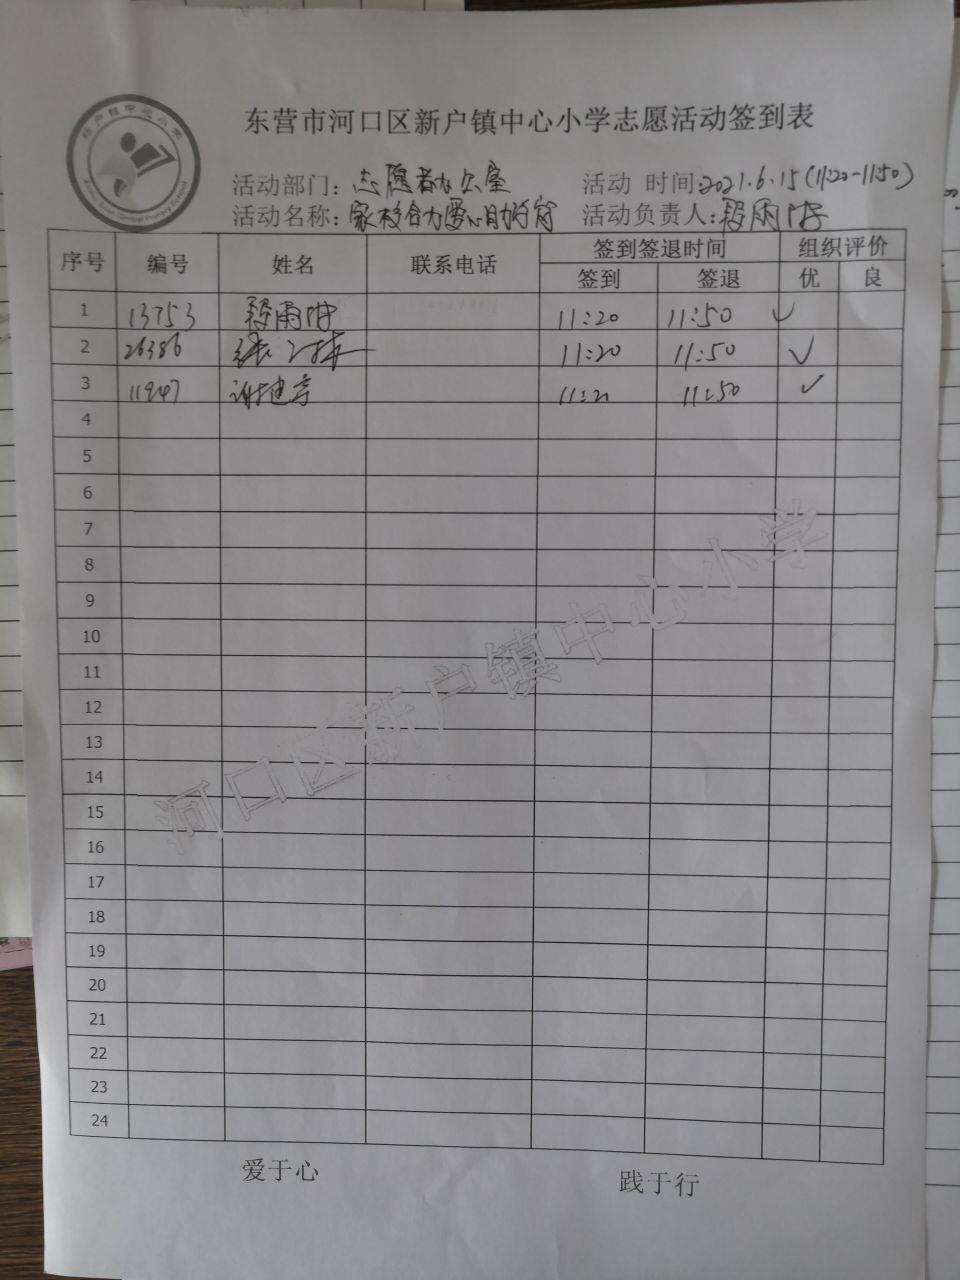 东营市河口区新户镇中心小学志愿活动签到表
新户镇中心小学
活动部门：志愿者办公室 活动 时间：2021.6.15(11:20-11:50)
活动名称：家校合力爱心助学岗 活动负责人：段雨
序号 编号 姓名 联系电话 签到签退时间 组织评价
签到 签退 优 良
1 13753 段雨 11:20 11:50 ✓
2 26386 张 11:20 11:50 ✓
3 11947 谢 11:20 11:50 ✓
4
5
6
7
8
9
10
11
12
13
14
15
16
17
18
19
20
21
22
23
24
河口区新户镇中心小学
爱于心 践于行